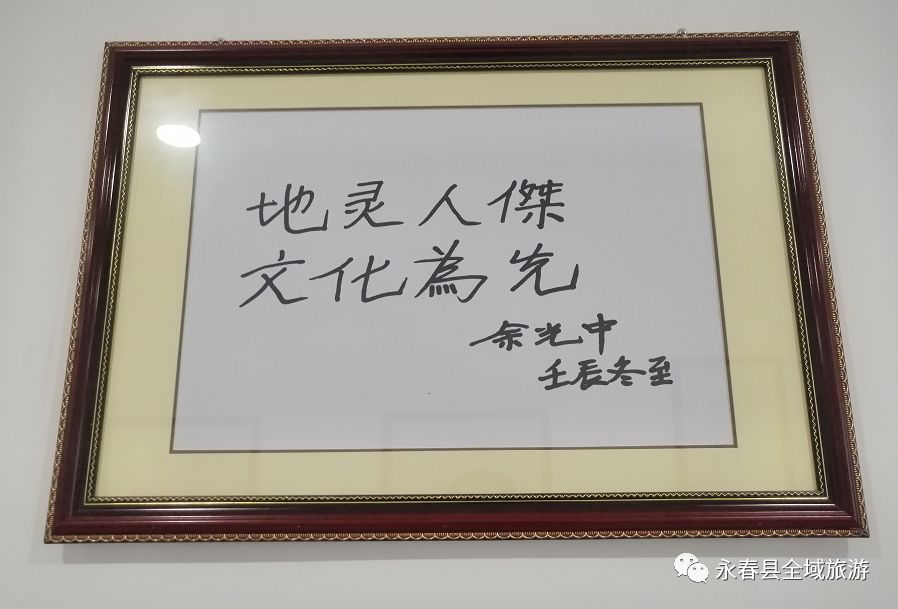 地灵人傑
文化為先
余光中
壬辰冬至
永春县全域旅游